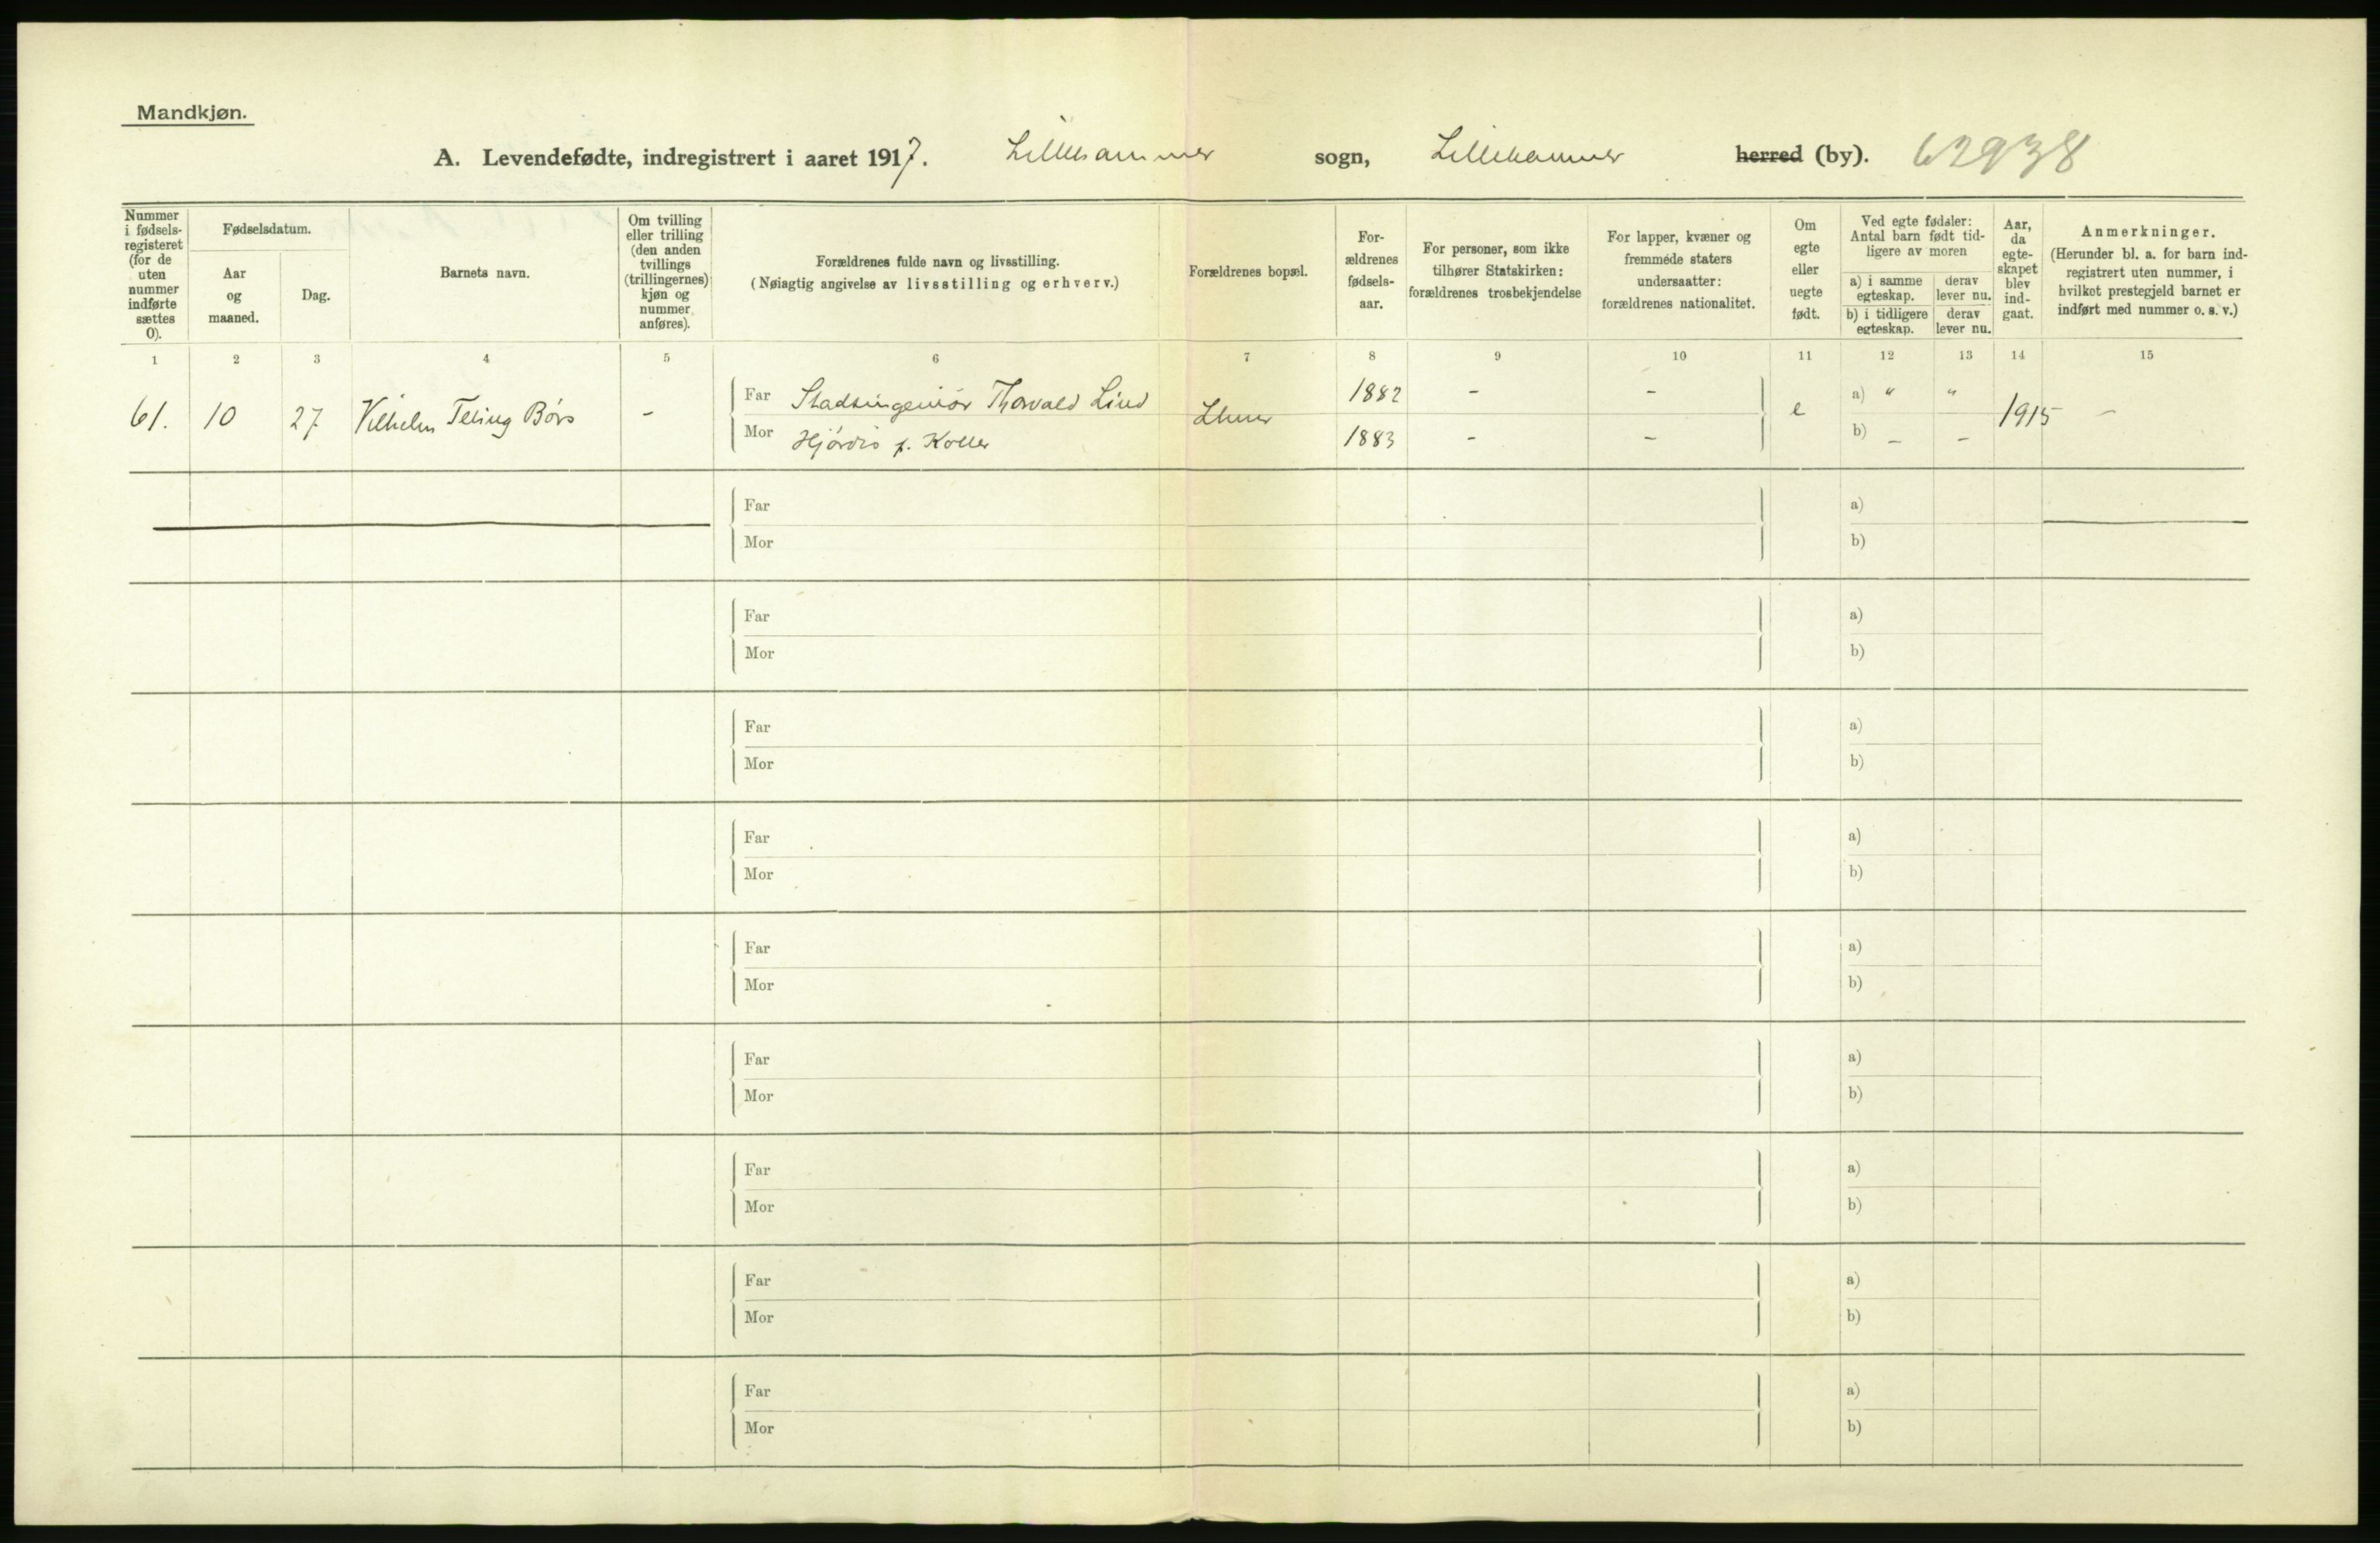 Mandkjøn.
A. Levendefødte, indregistrert i aaret 1917. Lillehammer sogn, Lillehammer herred (by). 62938
Nummer i fødsels-registeret (for de uten nummer indførte sættes 0).
Fødselsdatum.
Aar og maaned.
Dag.
Barnets navn.
Om tvilling eller trilling (den anden tvillings (trillingernes) kjøn og nummer anføres).
Forældrenes fulde navn og livsstilling.
(Nøiagtig angivelse av livsstilling og erhverv.)
Forældrenes bopæl.
For-ældrenes fødsels-aar.
For personer, som ikke tilhører Statskirken: forældrenes trosbekjendelse
For lapper, kvæner og fremmede staters undersaatter: forældrenes nationalitet.
Om egte eller uegte født.
Ved egte fødsler: Antal barn født tid-ligere av moren
a) i samme egteskap.
derav lever nu.
b) i tidligere egteskap.
derav lever nu.
Aar, da egte-skapet blev ind-gaat.
Anmerkninger.
(Herunder bl. a. for barn ind-registrert uten nummer, i hvilket prestegjeld barnet er indført med nummer o. s. v.)
1 2 3 4 5 6 7 8 9 10 11 12 13 14 15
61. 10 27 Vilhelm Børs - Far Stadsingeniør Thorvald Lind Lhmr 1882 - - e a) " " 1915 -
Mor Hjørdis f. Koller 1883 - - b) - -
Far a)
Mor b)
Far a)
Mor b)
Far a)
Mor b)
Far a)
Mor b)
Far a)
Mor b)
Far a)
Mor b)
Far a)
Mor b)
Far a)
Mor b)
Far a)
Mor b)